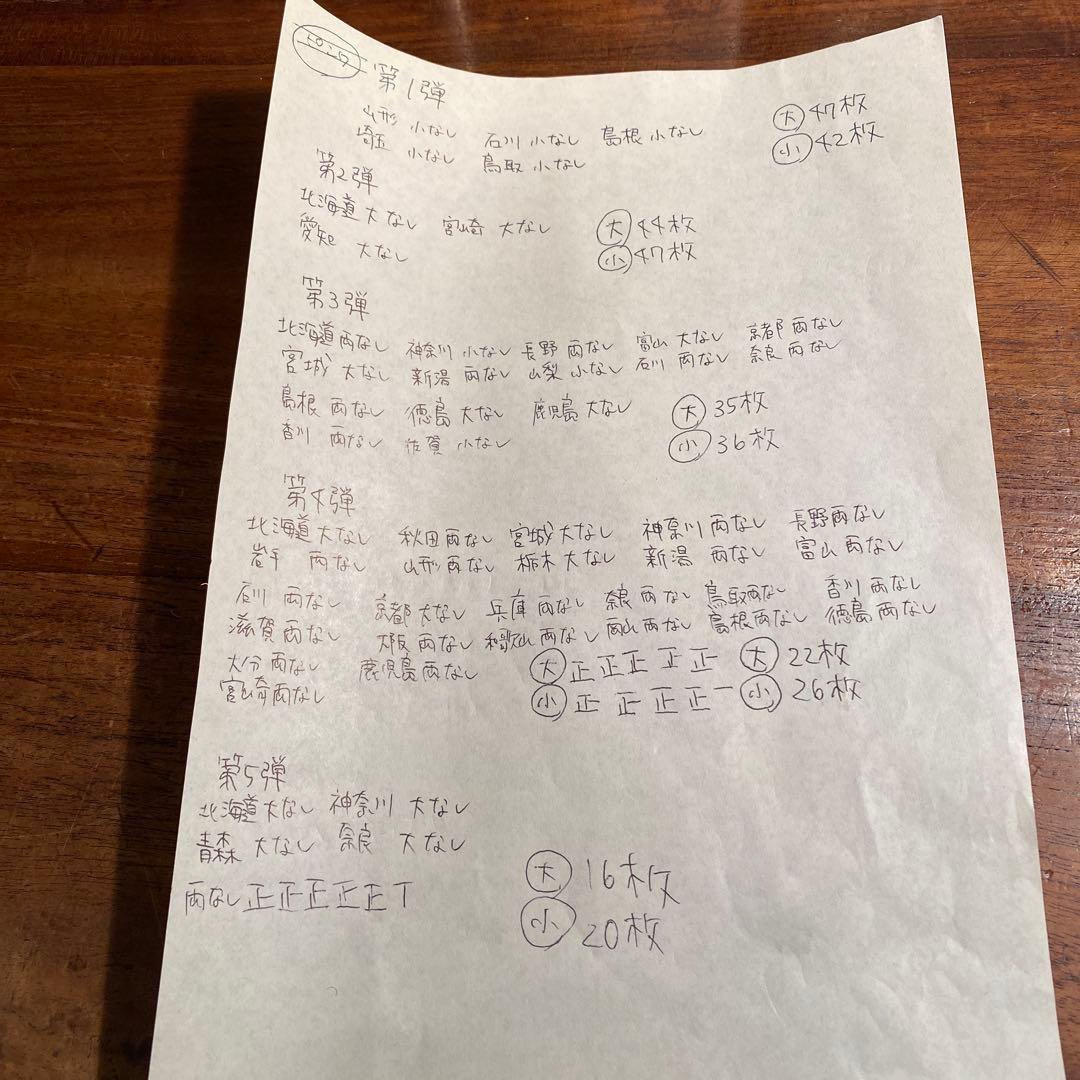 第1弾
山形 小なし 石川 小なし 島根 小なし 大 47枚
埼玉 小なし 鳥取 小なし 小 42枚
第2弾
北海道 大なし 宮崎 大なし 大 44枚
愛知 大なし 小 47枚
第3弾
北海道 両なし 神奈川 小なし 長野 両なし 富山 大なし 京都 両なし
宮城 大なし 新潟 両なし 山梨 小なし 石川 両なし 奈良 両なし
島根 両なし 徳島 大なし 鹿児島 大なし 大 35枚
香川 両なし 佐賀 小なし 小 36枚
第4弾
北海道 大なし 秋田 両なし 宮城 大なし 神奈川 両なし 長野 両なし
岩手 両なし 山形 両なし 栃木 大なし 新潟 両なし 富山 両なし
石川 両なし 京都 大なし 兵庫 両なし 奈良 両なし 鳥取 両なし 香川 両なし
滋賀 両なし 大阪 両なし 和歌山 両なし 岡山 両なし 島根 両なし 徳島 両なし
大分 両なし 鹿児島 両なし 大 正正正正正 大 22枚
宮崎 両なし 小 正正正正一 小 26枚
第5弾
北海道 大なし 神奈川 大なし
青森 大なし 奈良 大なし
両なし 正正正正正丅 大 16枚
小 20枚